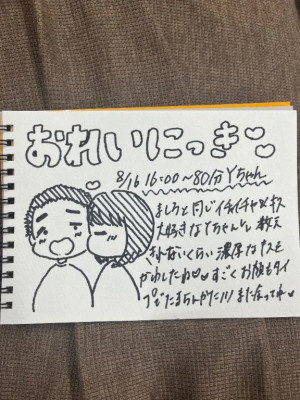 おれいにっき♡
8/16 16:00〜80分 Yちゃん
ましろと同じイチイチャ&キス
大好きなYちゃんと、数え
きれないくらい濃厚なキスを
かわしたね♡♡すごくお顔もタイ
プでたまらんかた!!! また会ってね♡